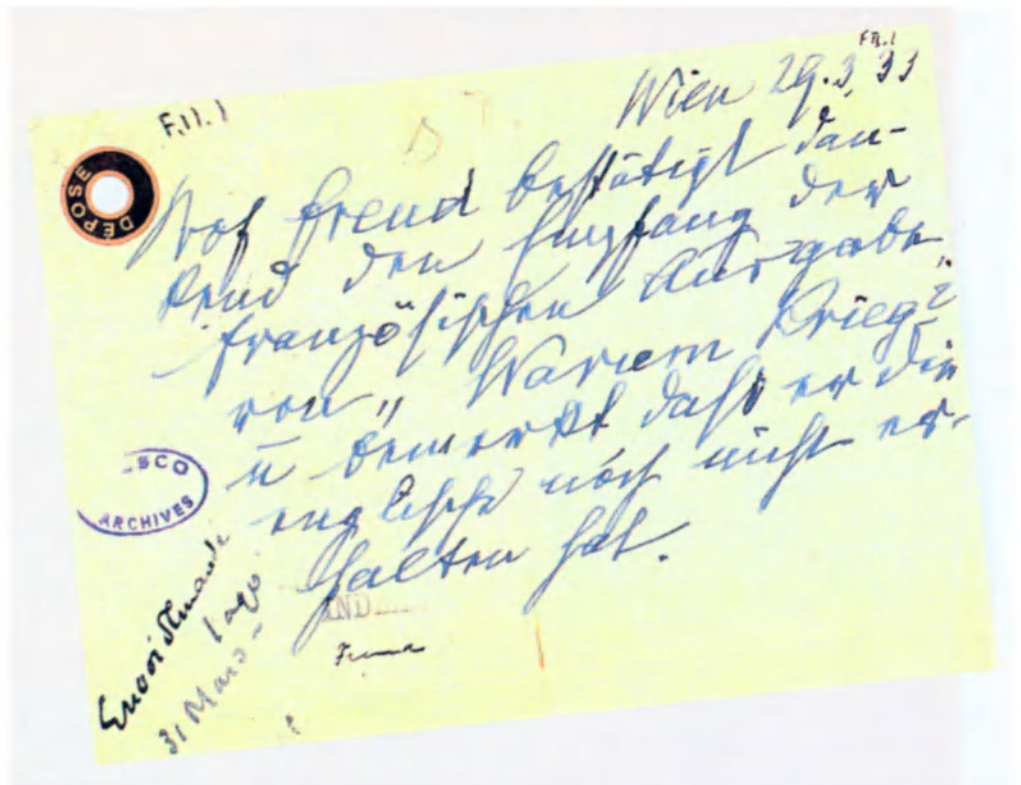 F.11.1
Wien 29.3.33
Prof Freud bestätigt dan-
kend den Empfang der
französischen Ausgabe
von „Warum Krieg?
u bemerkt daß er die
englische noch nicht er-
halten hat.
DÉPOSÉ
SCO
ARCHIVES
31 Mars